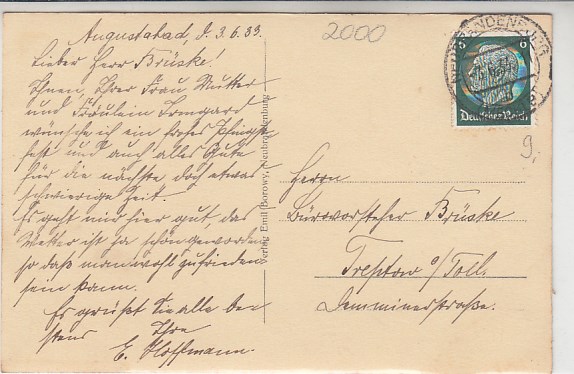 Augustabad, d. 3.6.33.
Lieber Herr Brüske!
Ihnen, Ihrer Frau Mutter
und Fräulein Irmgard
wünsche ich ein frohes Pfingst-
fest und auch alles Gute
für die nächste doch etwas
schwierige Zeit.
Es geht mir hier gut, das
Wetter ist ja schön geworden
so daß man wohl zufrieden
sein kann.
Es grüßt Sie alle bes
tens Ihre
E. Hoffmann.
Verlag Emil Borowy, Neubrandenburg
2000
NEUBRANDENBURG
6 6
Deutsches Reich
9,-
Herrn
Bürovorsteher Brüske
Treptow a/Toll.
Demminerstraße.